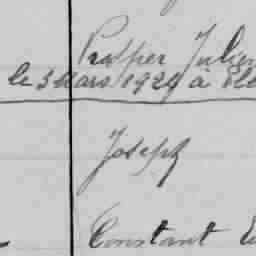 Prosper Julien
le 3 Mars 1929 à
Joseph
Constant